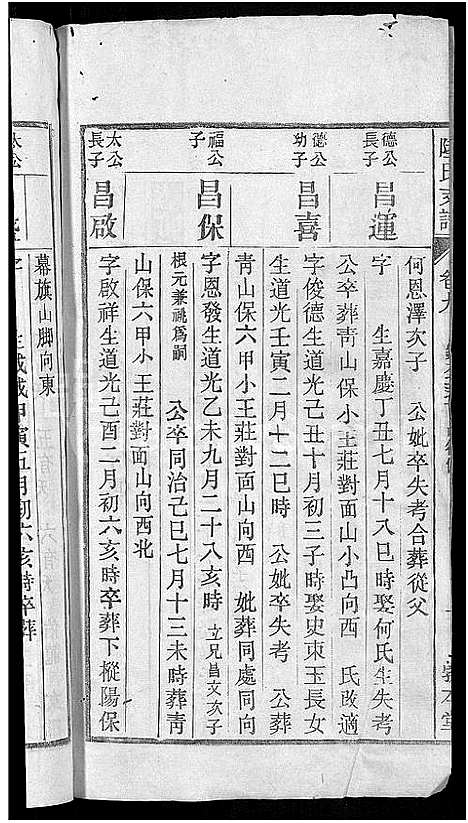 氏支譜
卷九
何恩澤次子　公妣卒失考合葬從父
德公長子
昌運
字　生嘉慶丁丑七月十八巳時娶何氏生失考
公卒葬青山保小王莊對面山小凸向西　氏改適
德公幼子
昌喜
字俊德生道光己丑十月初三子時娶史東玉長女
生道光壬寅二月十二巳時　公妣卒失考　公葬
青山保六甲小王莊對面山向西　妣葬同處同向
福公子
昌保
字恩發生道光乙未九月二十八亥時　立兄昌文次子
根元兼祧為嗣　公卒同治己巳七月十三未時葬青
山保六甲小王莊對面山向西北
太公長子
昌啟
字啟祥生道光己酉二月初六亥時卒葬下樅陽保
幕旗山脚向東
太公
字　生咸豐甲寅五月初六亥時卒葬